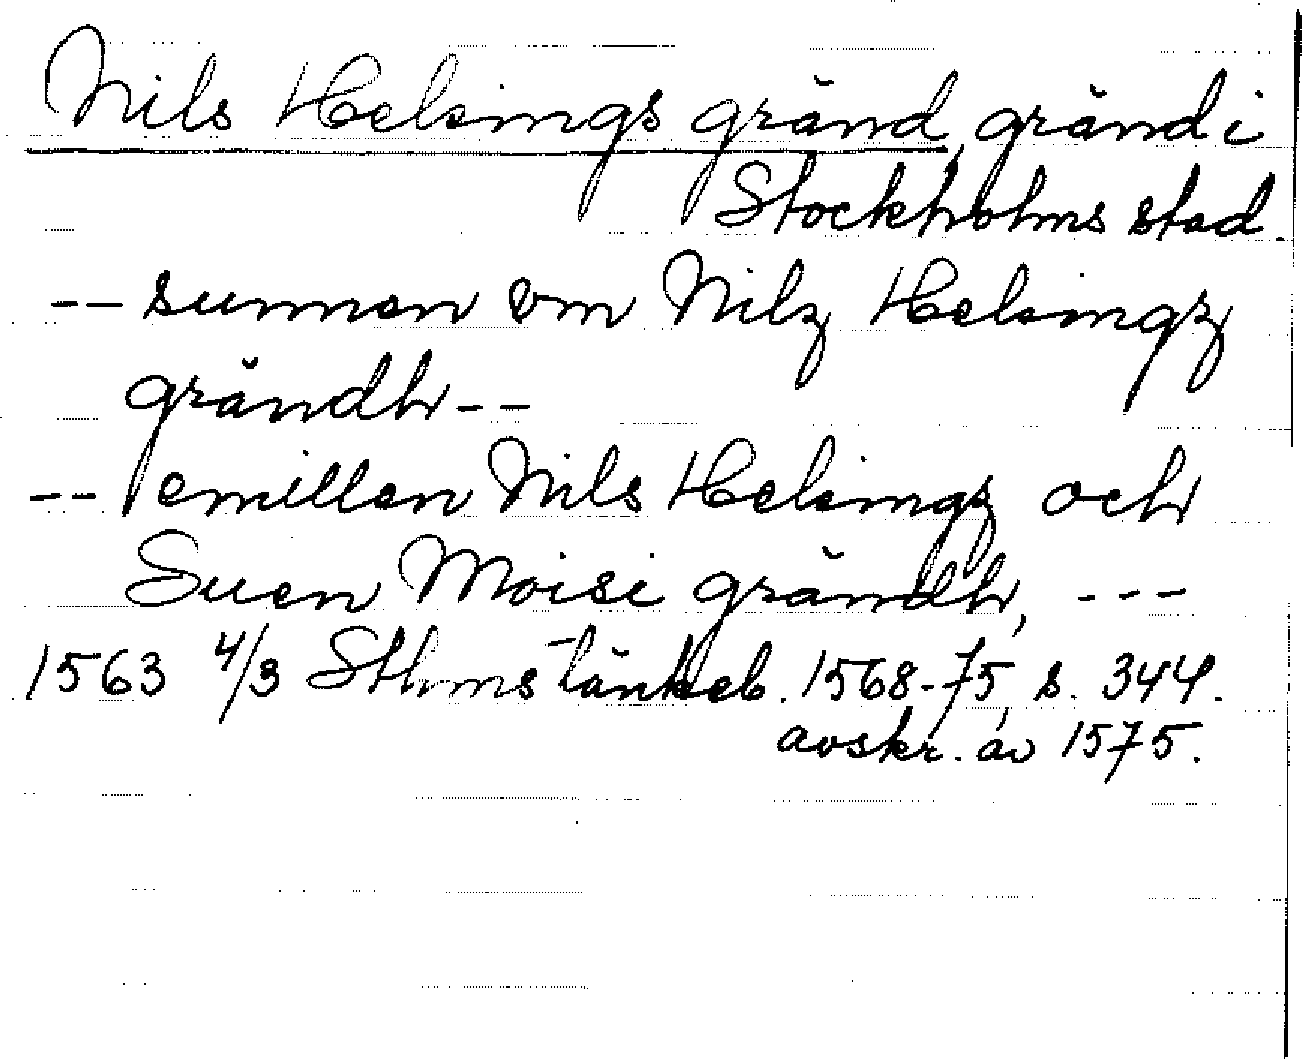 Nils Helsings gränd, gränd i
Stockholms stad.
-- sunnan vm Nilz Helsingz
grändh --
-- emillan Nils Helsingz och
Suen Moisi grändh, ---
1563 4/3 Sthms tänkeb. 1568-75, s. 344.
avskr. av 1575.